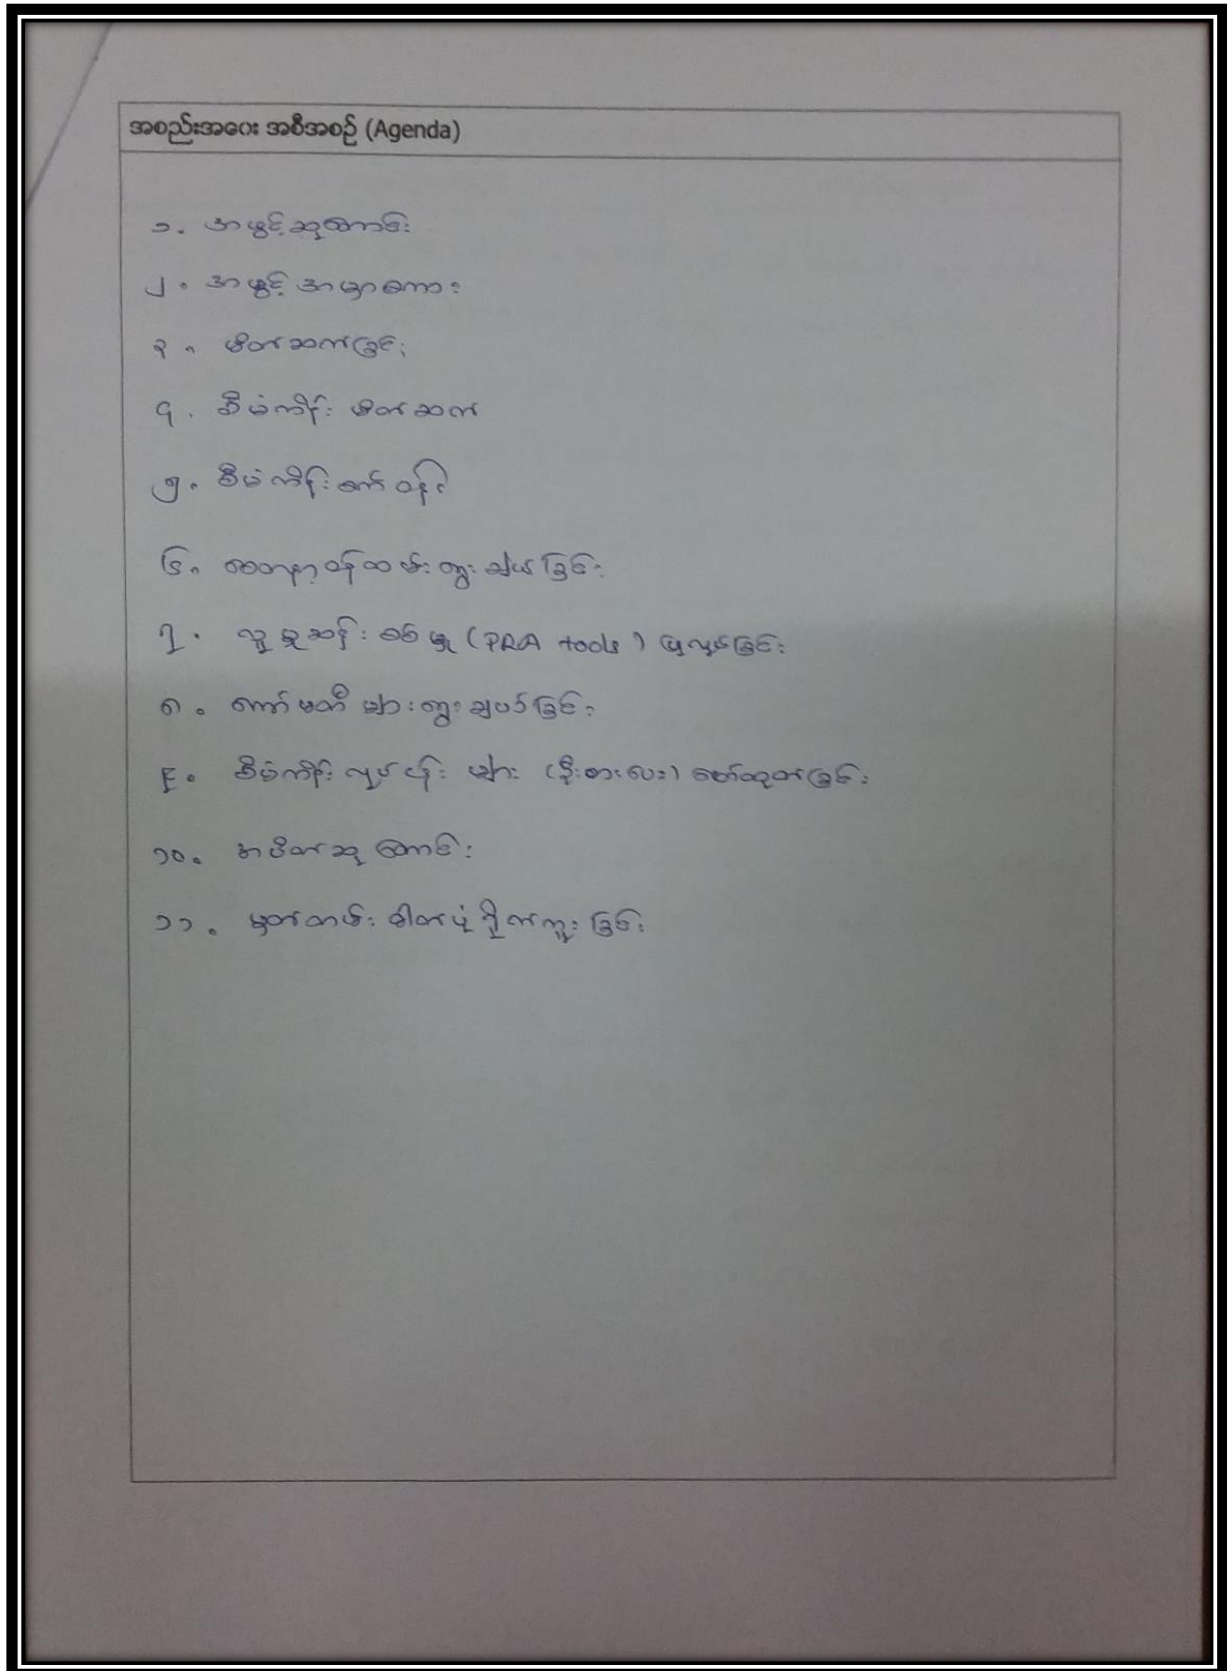 အစည်းအဝေး အစီအစဉ် (Agenda)
၁. အဖွင့်ဆုတောင်း
၂. အဖွင့်အမှာစကား
၃. မိတ်ဆက်ခြင်း
၄. စီမံကိန်း မိတ်ဆက်
၅. စီမံကိန်း
၆. စေတနာ့ဝန်ထမ်းရွေးချယ်ခြင်း
၇. လူမှုဆန်းစစ်မှု (PRA tools) ပြုလုပ်ခြင်း
၈. ကော်မတီများရွေးချယ်ခြင်း
၉. စီမံကိန်းလုပ်ငန်းများ (ဦးစားပေး) ဖော်ထုတ်ခြင်း
၁၀. အပိတ်ဆုတောင်း
၁၁. မှတ်တမ်းဓါတ်ပုံရိုက်ကူးခြင်း